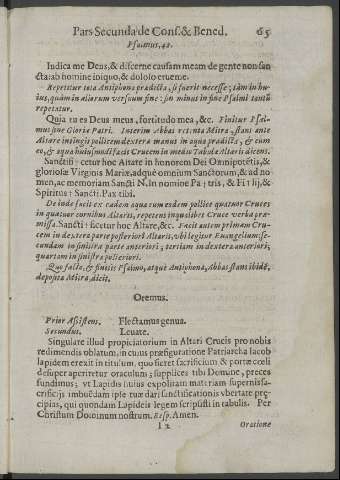 Pars Secunda de Cons. & Bened. 65
Psalmus. 42.
Iudica me Deus, & discerne causam meam de gente non san
cta: ab homine iniquo, & doloso erueme.
Repetitur tota Antiphona prædicta, si fuerit necesse; tàm in hu-
ius, quàm in aliarum versuum fine: sin minus in fine Psalmi tantũ
repetatur.
Quia tu es Deus meus, fortitudo mea, &c. Finitur Psal-
mus sine Gloria Patri. Interim Abbas retenta Mitra, stans ante
Altare intingis pollicem dexteræ manus in aqua prædicta, & cum
eo, & aqua huiusmodi facit Crucem in medio Tabulæ Altaris dicens.
Sancti✝ficetur hoc Altare in honorem Dei Omnipotẽtis, &
gloriosæ Virginis Mariæ, atque omnium Sanctorum, & ad no-
men, ac memoriam Sancti N. In nomine Pa✝tris, & Fi✝lij, &
Spiritus✝Sancti. Pax tibi.
Deinde facit ex eadem aqua cum eodem pollice quatuor Cruces
in quatuor cornibus Altaris, repetens in qualibet Cruce verba præ-
missa. Sancti✝ficetur hoc Altare, &c. Facit autem primam Cru-
cem in dextera parte posteriori Altaris, vbi legitur Euangelium: se-
cundam in sinistra parte anteriori; tertiam in dextera anteriori;
quartam in sinistra posteriori.
Quo facto, & finitis Psalmo, atque Antiphona, Abbas stans ibidẽ,
deposita Mitra, dicit.
Oremus.
Prior Assistens. Flectamus genua.
Secundus. Leuate.
Singulare illud propiciatorium in Altari Crucis pro nobis
redimendis oblatum, in cuius præfiguratione Patriarcha Iacob
lapidem erexit in titulum, quo fieret sacrificium & portæ cœli
desuper aperiretur oraculum; supplices tibi Domine, preces
fundimus; vt Lapidis huius expolitam materiam supernis sa-
crificijs imbuẽdam ipse tuæ dari sanctificationis vbertate præ-
cipias, qui quondam Lapideis legem scripsisti in tabulis. Per
Christum Dominum nostrum. Resp. Amen.
I 2 Oratione